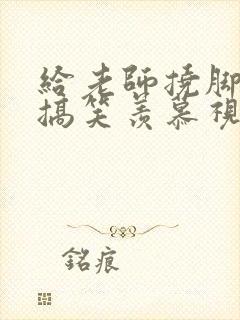 給老師撓腳
搞笑羨慕視
銘痕